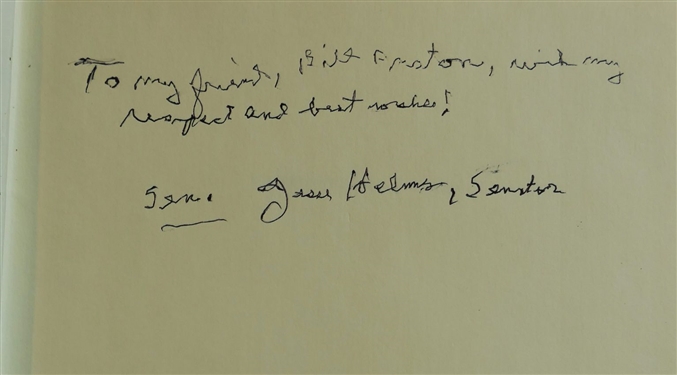 To my friend, Bill Friston, with my
respect and best wishes!
Sen. Jesse Helms, Senator